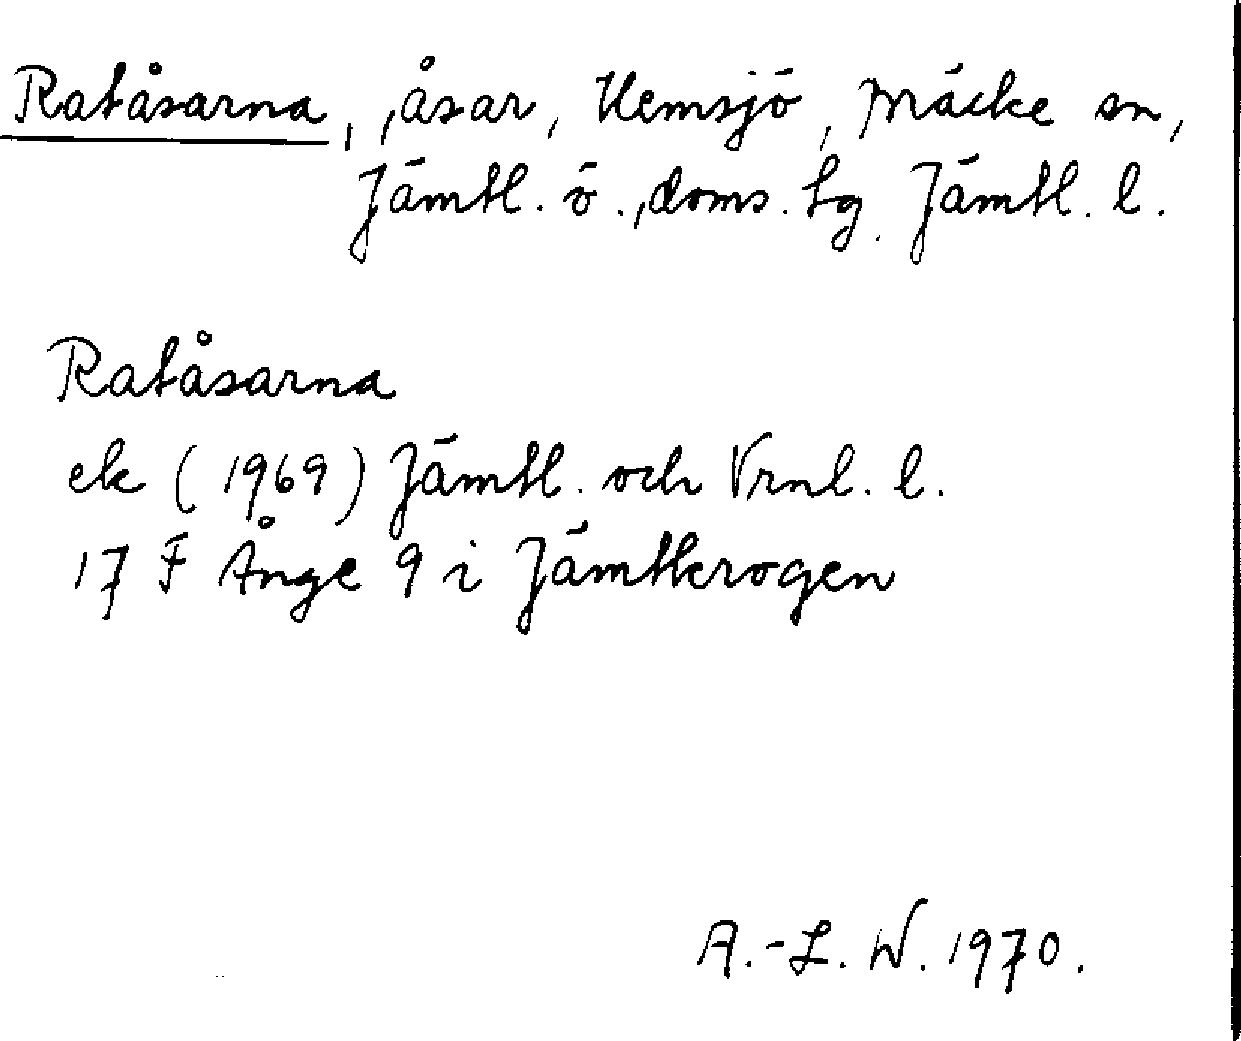 Ratåsarna, åsar, Hemsjö, Bräcke sn,
Jämtl. ö., doms. tg. Jämtl. l.
Ratåsarna
ek (1969) Jämtl. och Vrnl. l.
17 F Ånge 9 i Jämtkrogen
A.-L. W. 1970.